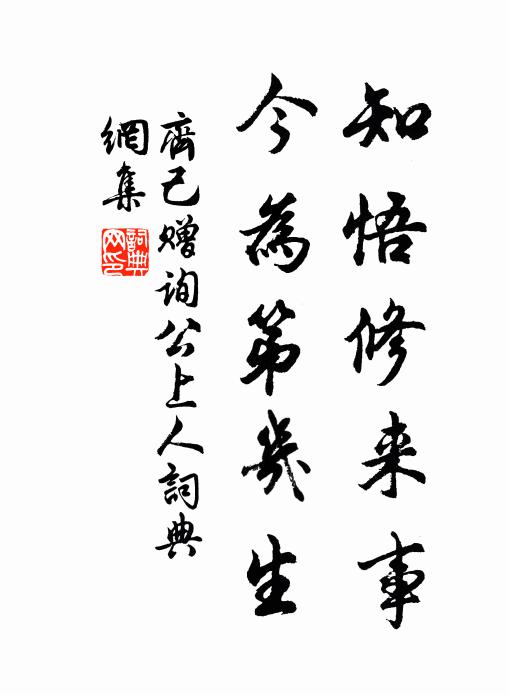 知悟修来事
今為第幾生
齊己贈詢公上人詞典
網集
詞典網印